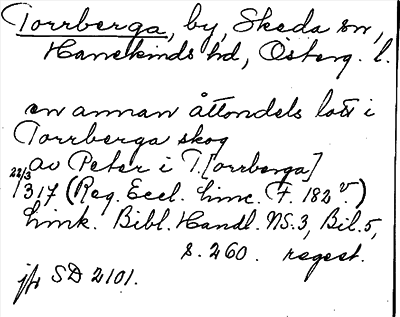 Torrberga, by, Skeda sn,
Hanekinds hd, Österg. l.
en annan åttondels lott i
Torrberga skog
av Peter i T.[orrberga]
22/3 1317 (Reg. Eccl. Linc. F. 182 v.)
Link. Bibl. Handl. NS. 3, Bil. 5,
s. 260. regest.
jfr SD 2101.